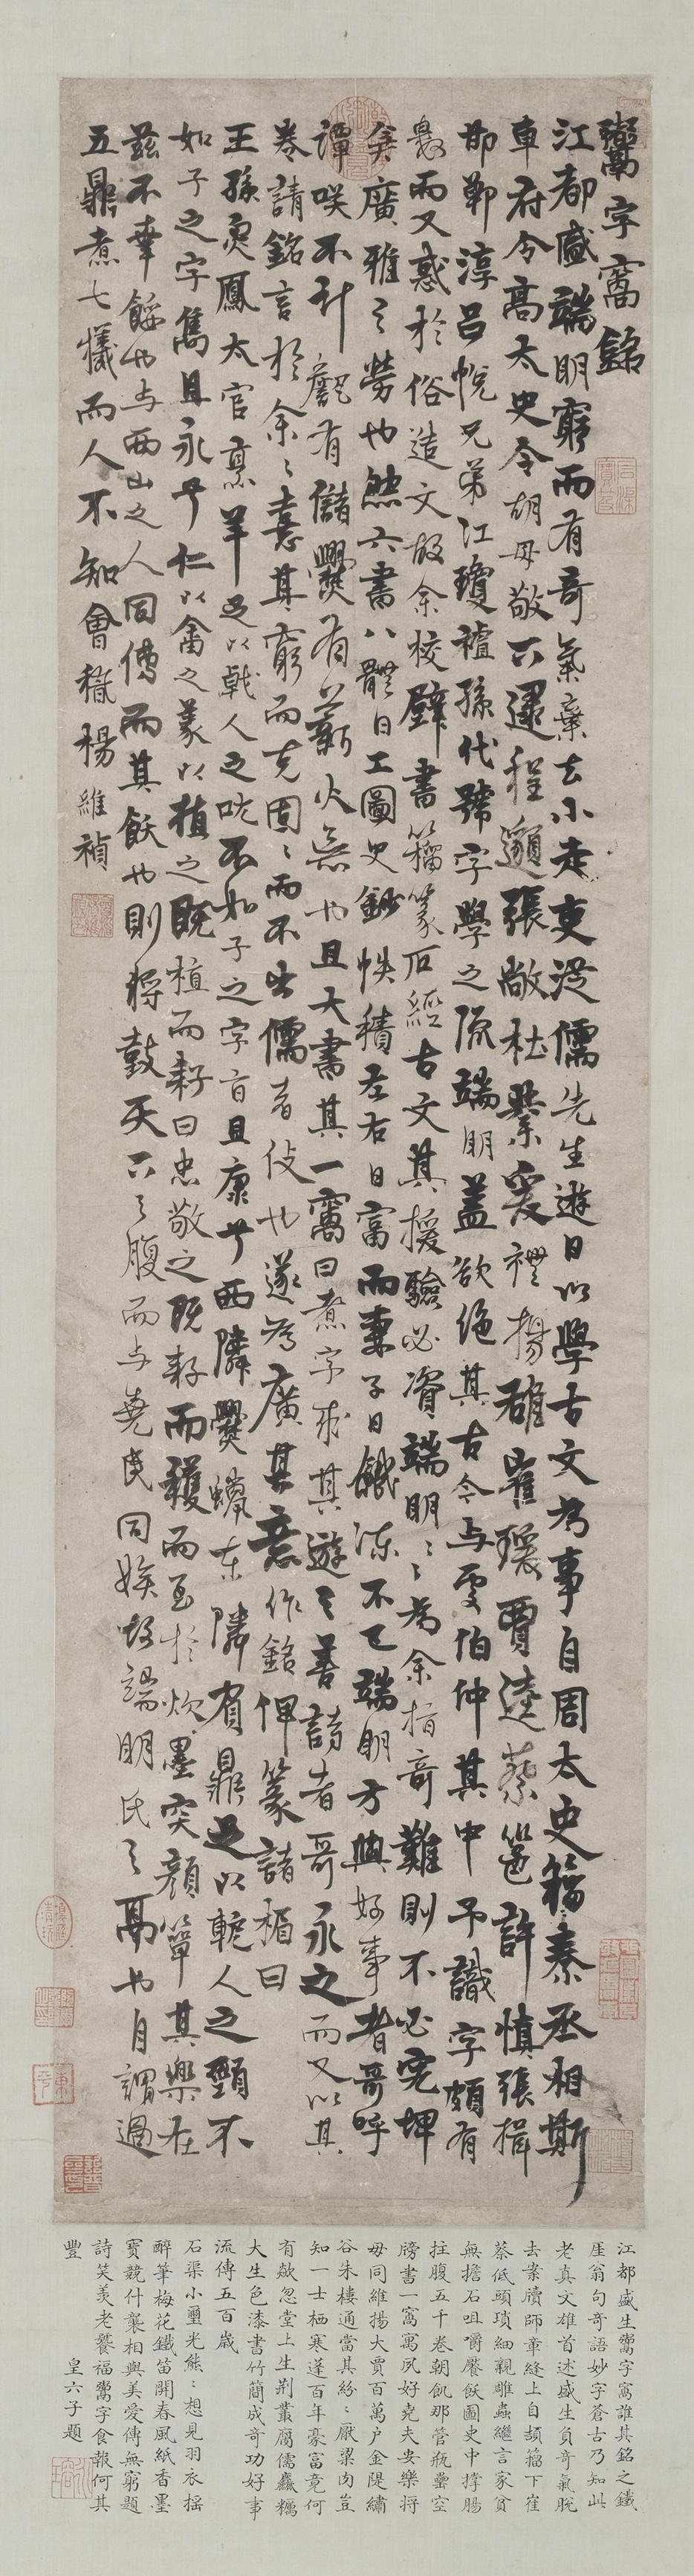 鬻字窩銘
江都盛端明窮而有奇氣棄去小走吏從儒先生遊日以學古文為事自周太史籀秦丞相斯
車府令高太史令胡毋敬下逮程邈張敞杜業爰禮揚雄崔瑗賈逵蔡邕許慎張揖
邯鄲淳呂忱兄弟江瓊襢孫代號字學之流端明蓋欲絶其古今与雯伯仲其中予識字頗有
而又惑於俗造文故余校壁書籀篆石經古文其援驗必資端明〻為余指奇難則不必
廣雅之勞也然六書八體日工圖史鈔帙積左右日富而妻子日餓凍不已端明方與好事者哥呼
譚咲不計甔有儲爨有薪火無也且大書其一窩曰煮字求其遊之善詩者哥永之而又以其
卷請銘言於余〻憙其窮而克固〻而不出儒者伎也遂為廣其意作銘俾篆諸楣曰
王孫炰鳳太官烹羊足以戟人之吭不如子之字旨且康兮西隣爨蠟東隣有鼎足以軛人之頸不
如子之字雋且永兮仁以畬之義以植之既植而耔曰忠敬之既耔而穫而至於炊墨突顏簞其樂在
茲不幸餒也与西山之人同傳而其飫也則將鼓天下之腹而与堯民同娭故端明氏之鬲也自謂過
五鼎煮七犧而人不知會稽楊維禎
江都盛生鬻字窩誰其銘之鐵
厓翁句奇語妙字蒼古乃知此
老真文雄首述盛生負奇氣脫
去案牘師章縫上自頡籀下崔
蔡低頭瑣細親雕蟲繼言家貧
無擔石咀嚼饜飫圖史中撐腸
拄腹五千卷朝飢那管瓶罍空
牓書一窩寓夙好堯夫安樂將
毋同維揚大賈百萬户金隄繡
谷朱樓通當其紛〻厭粱肉豈
知一士栖寒蓬百年豪富竟何
有歘忽堂上生荆叢腐儒麤糲
大生色漆書竹簡成奇功好事
流傳五百歲
石渠小璽光熊〻想見羽衣摇
醉筆梅花鐵笛開春風紙香墨
寶競什襲相與美愛傳無窮題
詩笑羨老饕福鬻字食報何其
豐
皇六子題